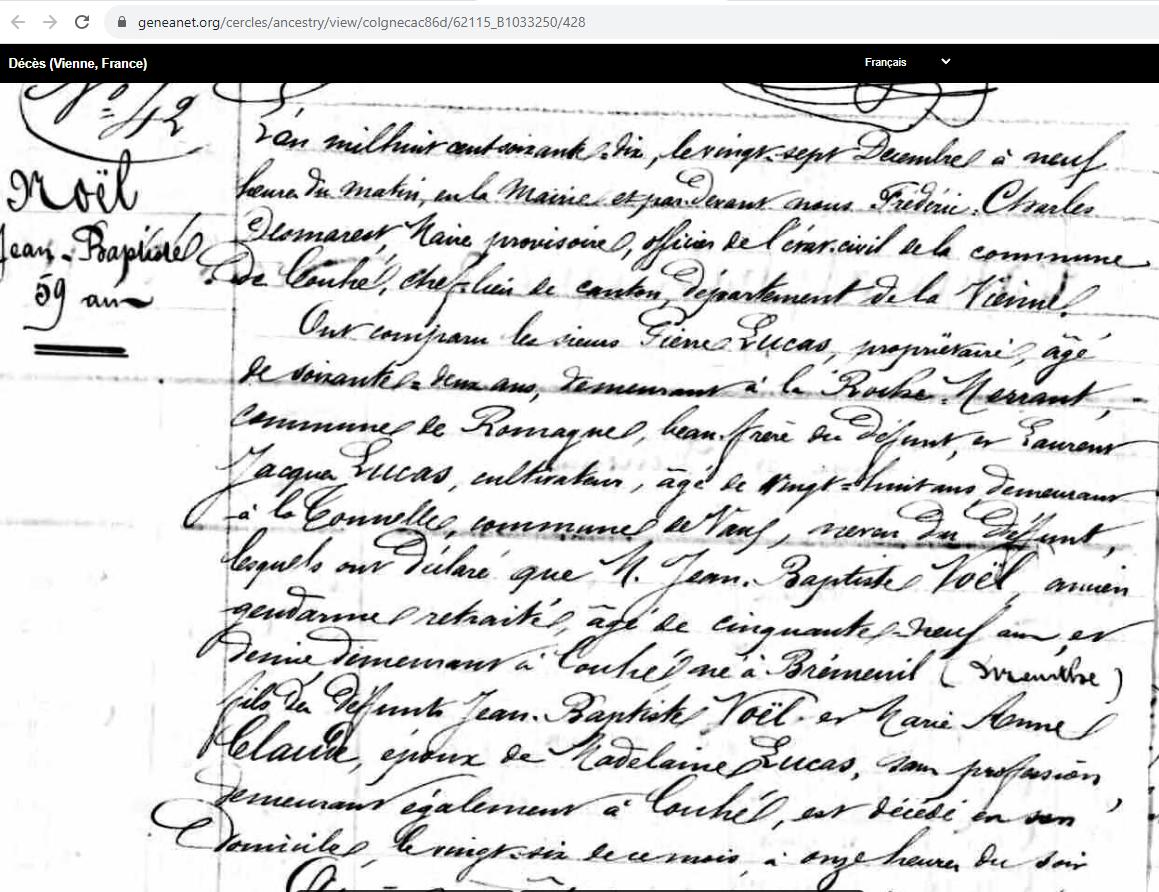 geneanet.org/cercles/ancestry/view/colgnecac86d/62115_B1033250/428
Décès (Vienne, France)
Français
No 42
Noël
Jean-Baptiste
59 ans
L'an mil huit cent soixante-dix, le vingt-sept Décembre à neuf
heures du matin, en la Mairie et par devant nous Frédéric-Charles
Desmarest, Maire provisoire, officier de l'état-civil de la commune
de Couhé, chef-lieu de canton, département de la Vienne,
Ont comparu les sieurs Pierre Lucas, propriétaire, âgé
de soixante-deux ans, demeurant à la Roche-Merrant,
commune de Romagne, beau-frère du défunt, et Laurent
Jacques Lucas, cultivateur, âgé de vingt-huit ans demeurant
à la commune de Vaux, neveu du défunt,
lesquels ont déclaré que M. Jean-Baptiste Noël, ancien
gendarme retraité, âgé de cinquante-neuf ans et
demi demeurant à Couhé né à Brémenil (Meurthe)
fils des défunts Jean-Baptiste Noël et Marie Anne
Claude, époux de Madelaine Lucas, sans profession,
demeurant également à Couhé, est décédé en son
domicile, le vingt-six de ce mois, à onze heures du soir